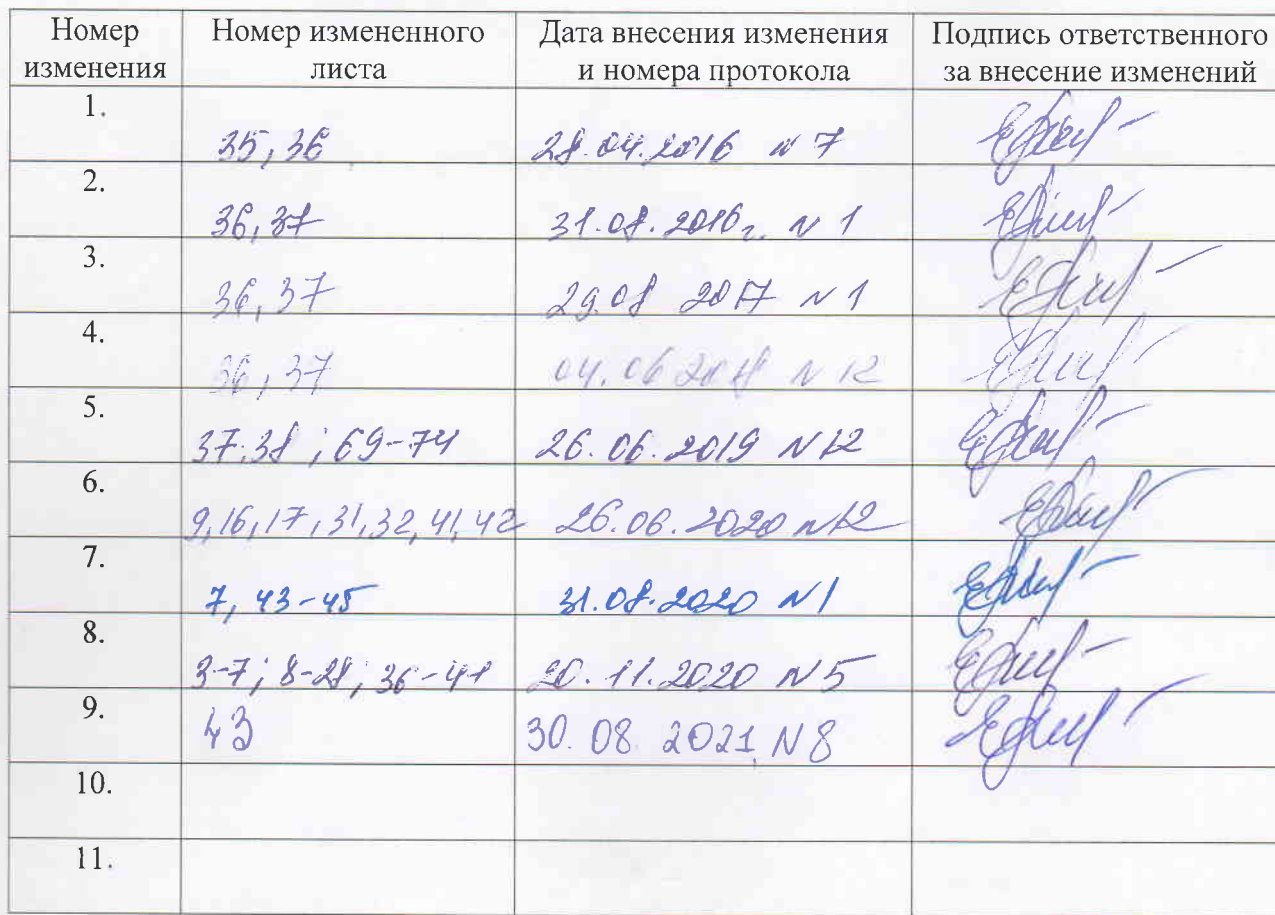 Номер изменения | Номер измененного листа | Дата внесения изменения и номера протокола | Подпись ответственного за внесение изменений
1. | 35, 36 | 28.04.2016 N 7
2. | 36, 37 | 31.08.2016г. N 1
3. | 36, 37 | 29.08 2017 N 1
4. | 36, 37 | 04.06 2018 N 12
5. | 37.38 ; 69-74 | 26.06.2019 N12
6. | 9, 16, 17, 31, 32, 41, 42 | 26.06.2020 N12
7. | 7, 43-45 | 31.08.2020 N1
8. | 3-7; 8-28; 36-41 | 20.11.2020 N5
9. | 43 | 30.08 2021 N8
10.
11.